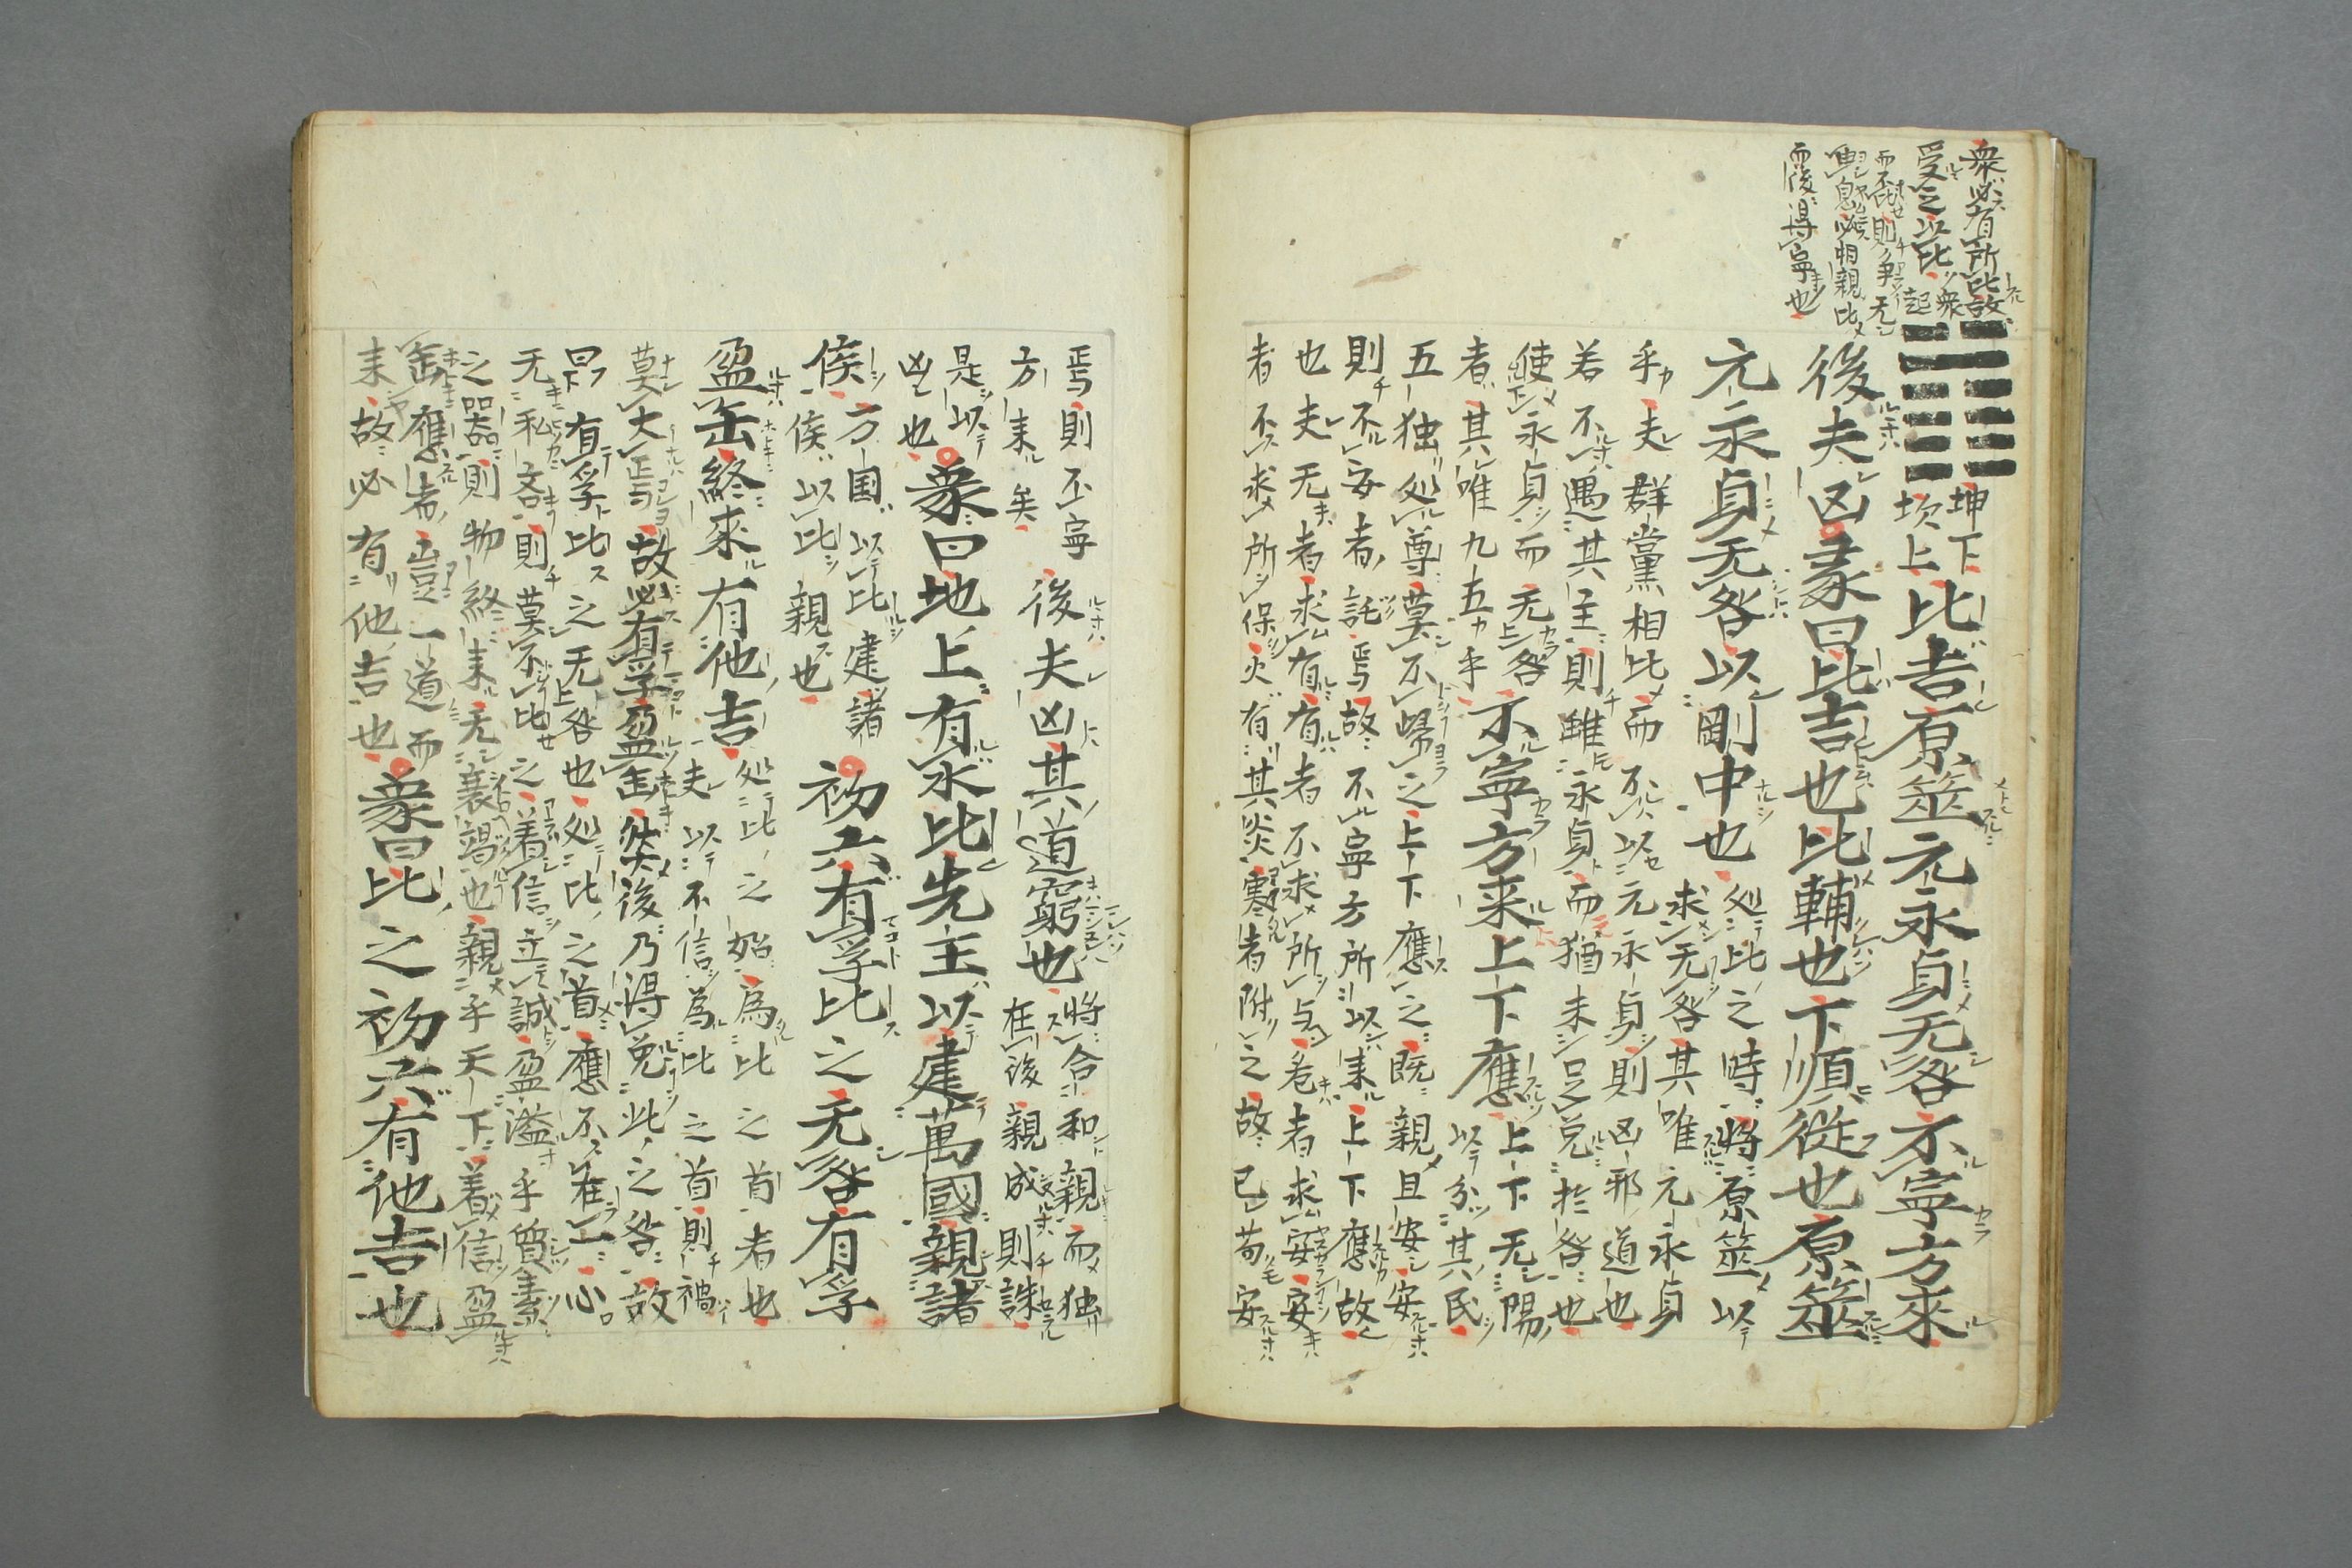 衆必有所比故
受之以比衆起
而不比則争无
與息必相親比
而後得寧也
坤下
坎上
比吉原筮元永貞无咎不寧方來
後夫凶彖曰比吉也比輔也下順從也原筮
元永貞无咎以剛中也
処比之時將原筮以
求无咎其唯元永貞
乎夫群黨相比而不以元永貞則凶邪道也
若不遇其主則雖永貞而猶未足免於咎也
使永貞而无咎
者其唯九五乎
不寧方来上下應
上下无陽
以分其民
五独処尊莫不歸之上下應之既親且安安
則不安者託焉故不寧方所以来上下應故
也夫无者求有有者不求所与危者求安安
者不求所保火有其炎寒者附之故已苟安
焉則不寧
方来矣
後夫凶其道窮也
將合和親而独
在後親成則誅
是以
凶也
象曰地上有水比先王以建萬國親諸
侯
万国以比建諸
侯以比親也
初六有孚比之无咎有孚
盈缶終來有他吉
処比之始為比之首者也
夫以不信為比之首則禍
莫大焉故必有孚盈缶然後乃得免此之咎故
曰有孚比之无咎也処比之首應不在一心
无私吝則莫不比之着信立誠盈溢乎質素
之器則物終来无衰竭也親乎天下着信盈
缶應者豈一道而
来故必有他吉也
象曰比之初六有他吉也